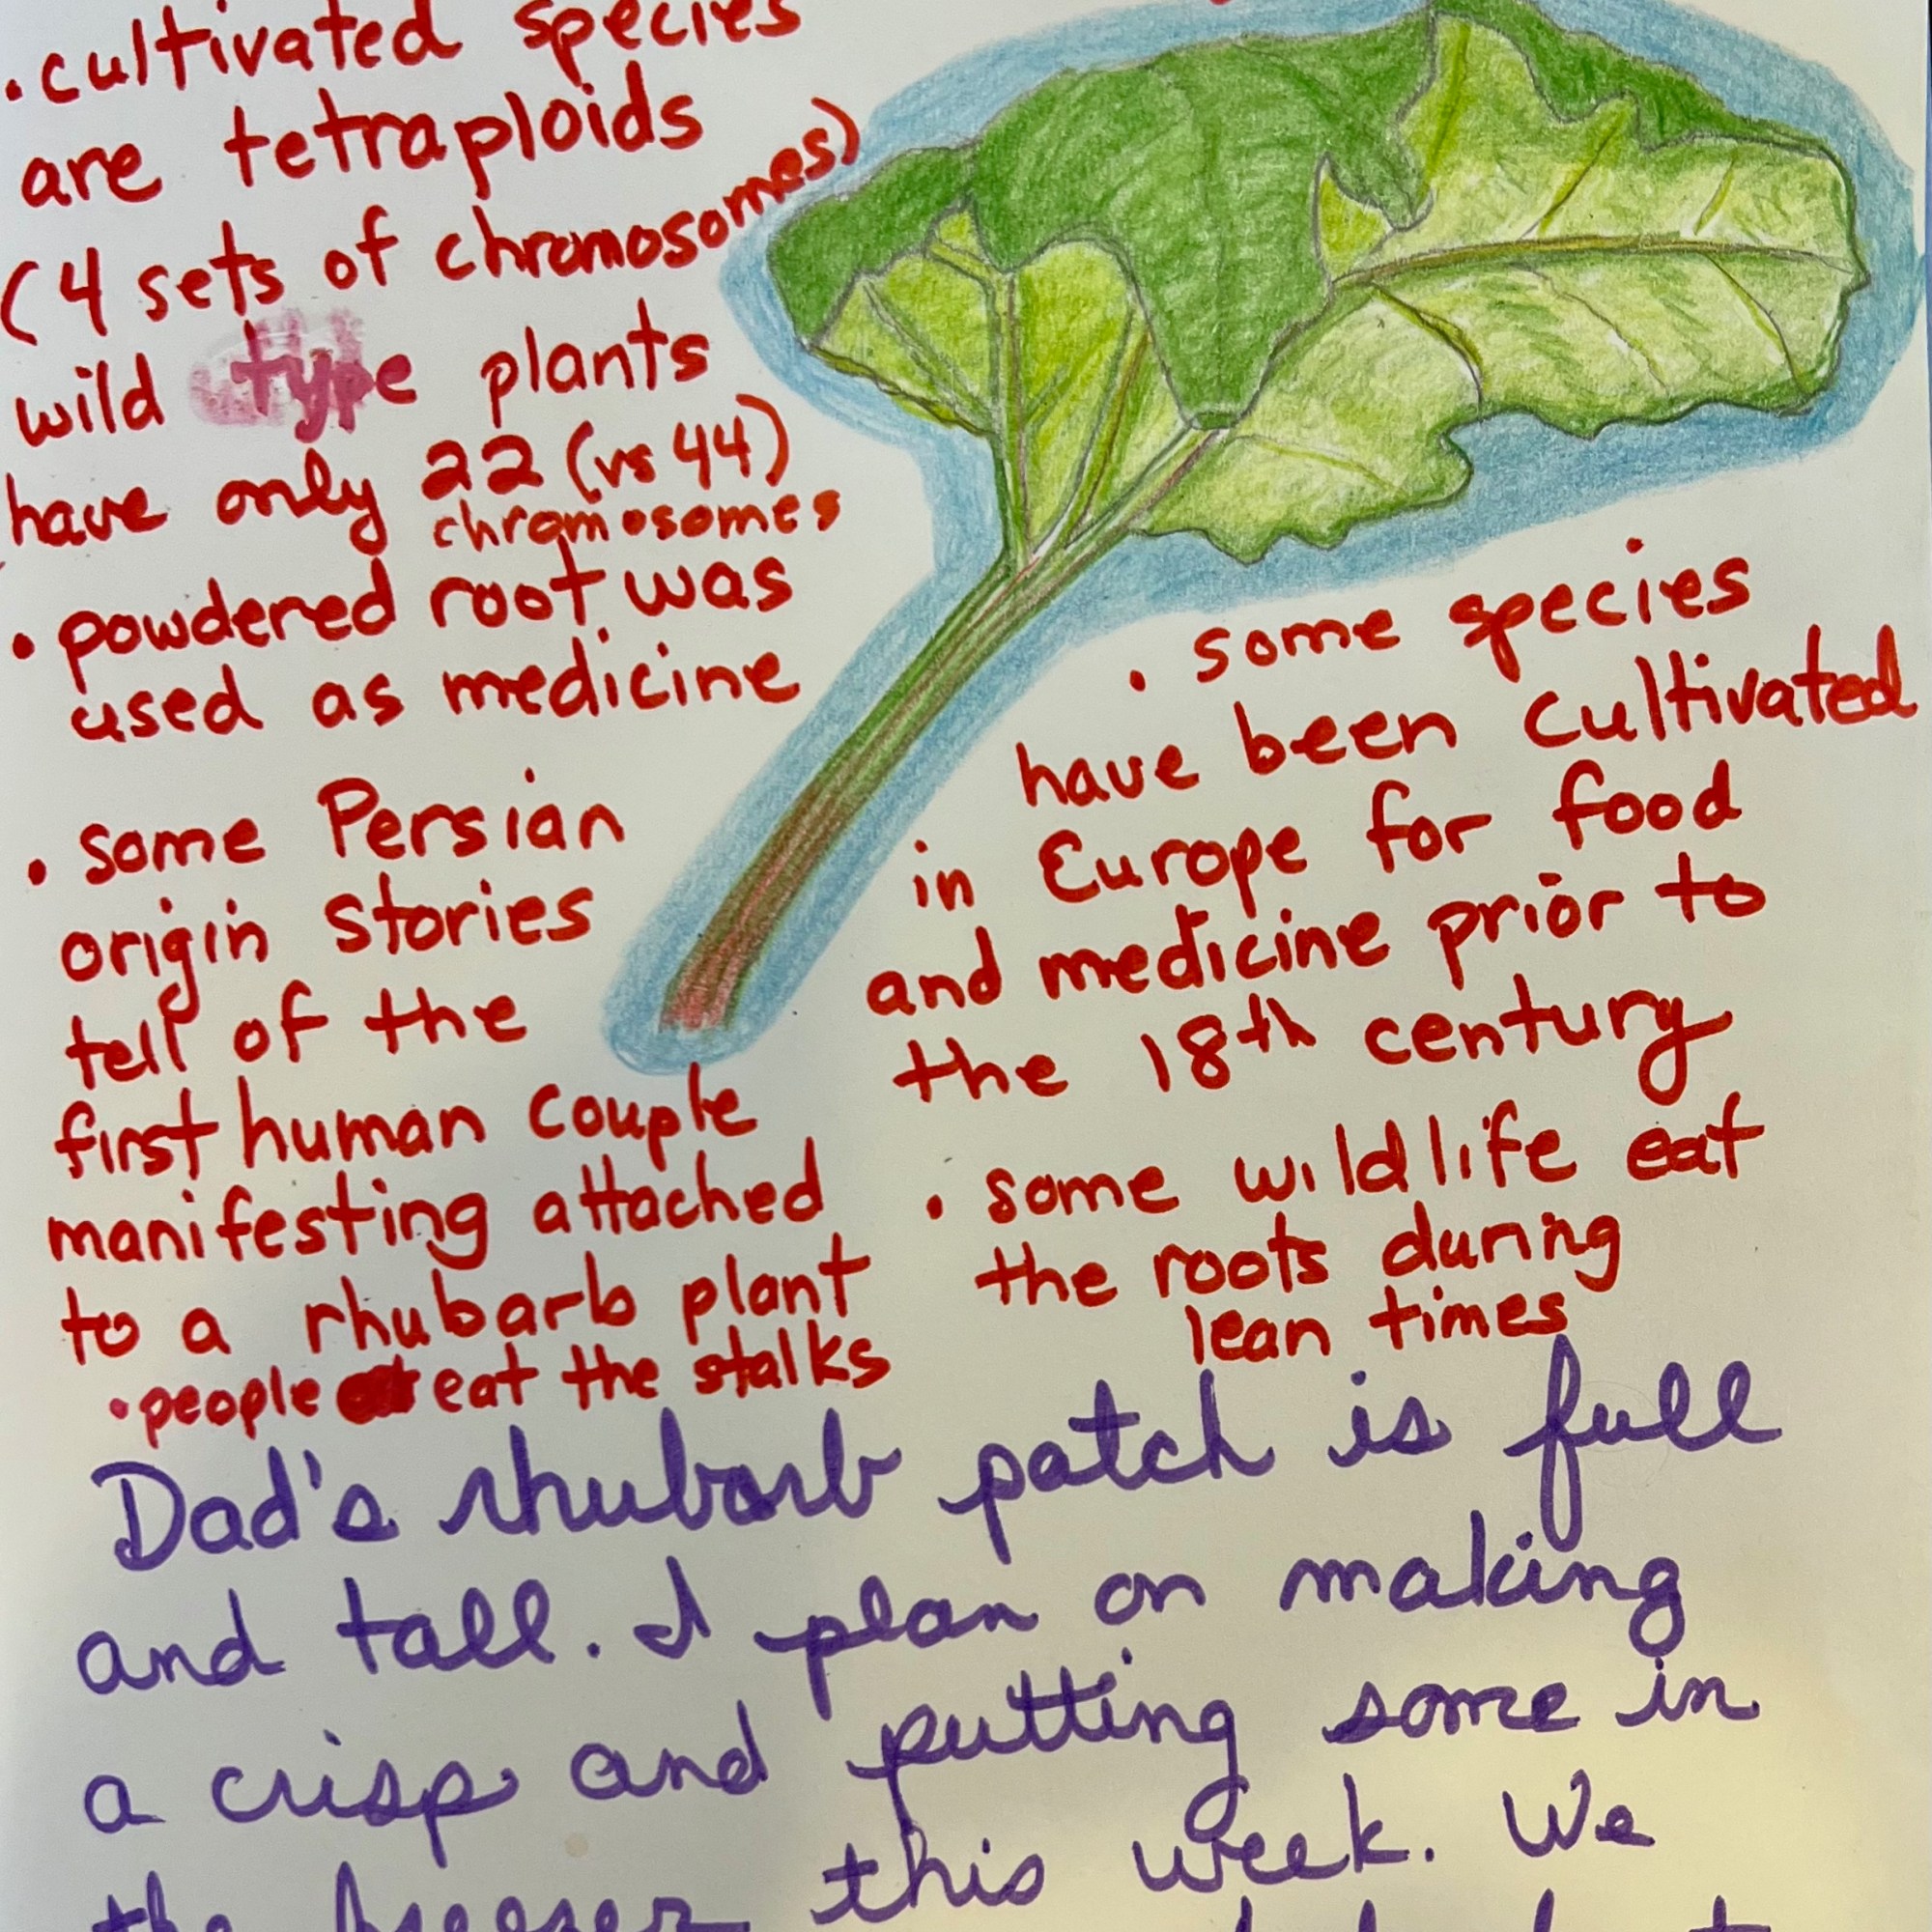 • cultivated species
are tetraploids
(4 sets of chromosomes)
wild type plants
have only 22 (vs 44)
chromosomes
• powdered root was
used as medicine
• some Persian
origin stories
tell of the
first human couple
manifesting attached
to a rhubarb plant
• people eat the stalks
• some species
have been cultivated
in Europe for food
and medicine prior to
the 18th century
• some wildlife eat
the roots during
lean times
Dad's rhubarb patch is full
and tall. I plan on making
a crisp and putting some in
the freezer this week. We